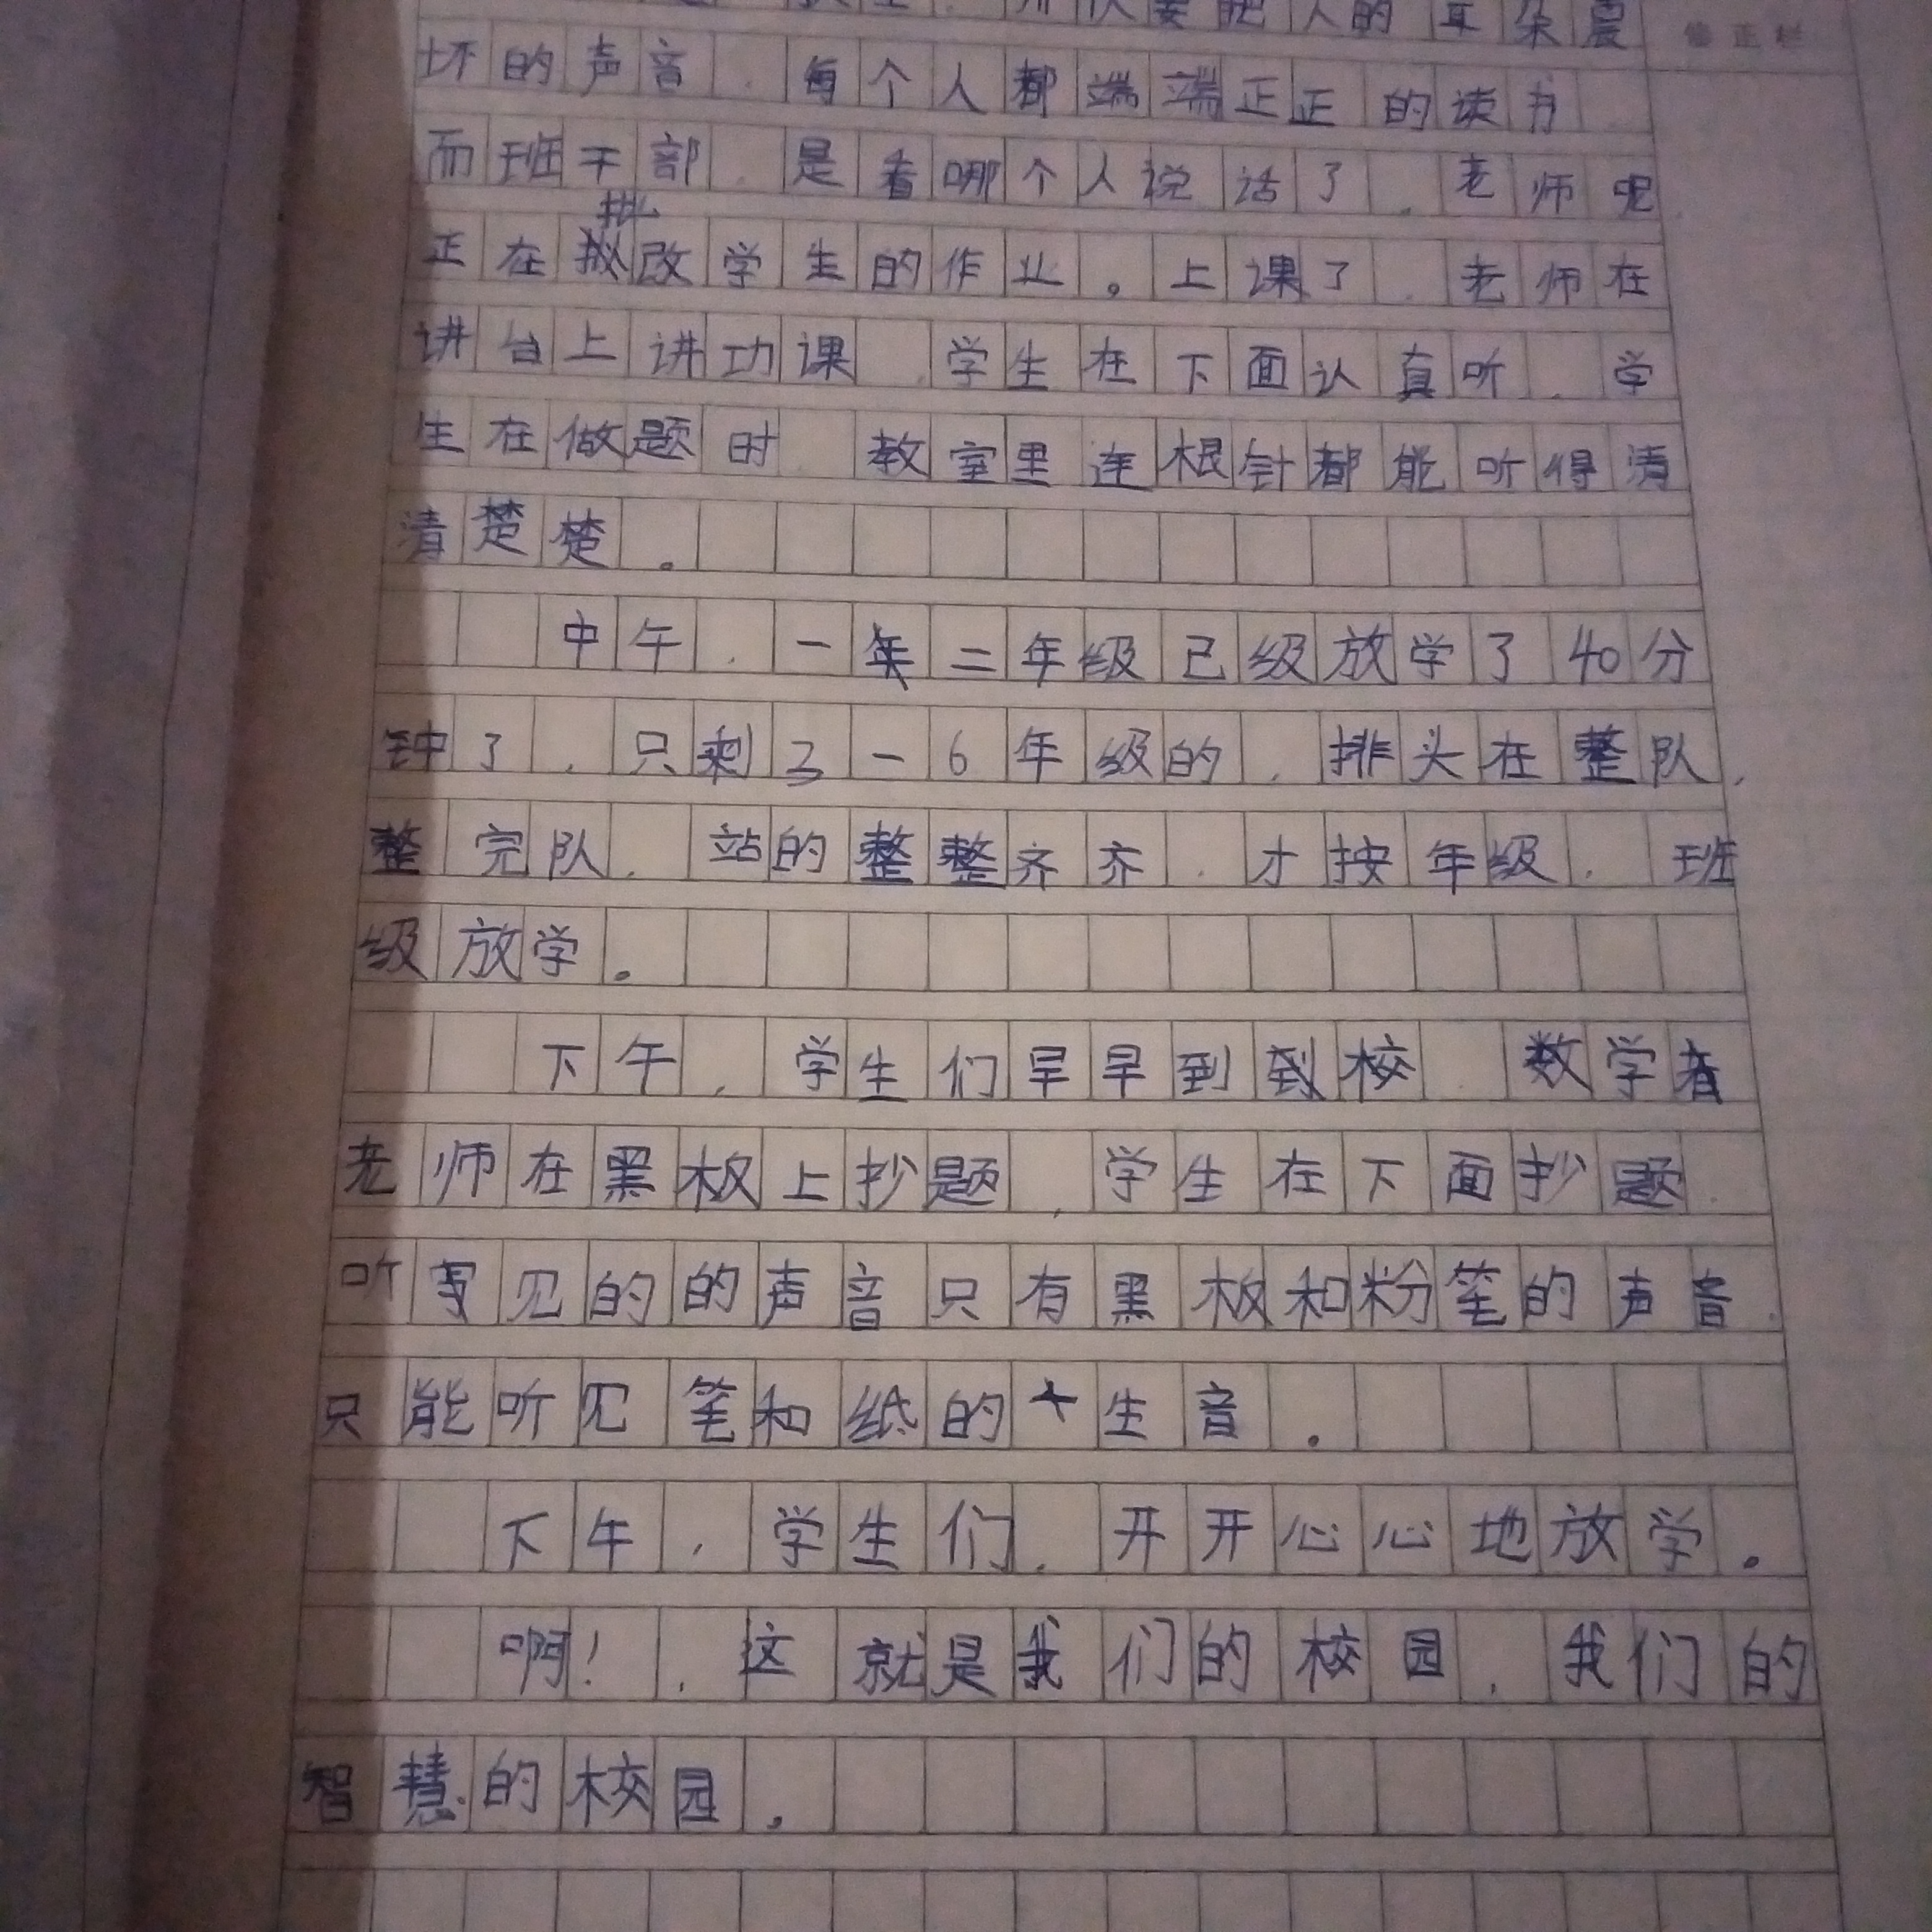 人的耳朵震
修正栏
坏的声音，每个人都端端正正的读书
而班干部，是看哪个人说话了，老师呢
批
正在拟改学生的作业。上课了，老师在
讲台上讲功课，学生在下面认真听，学
生在做题时，教室里连根针都能听得清
清楚楚。
中午，一年二年级已级放学了40分
钟了，只剩3-6年级的，排头在整队，
整完队，站的整整齐齐，才按年级，班
级放学。
下午，学生们早早到到校，数学者
老师在黑板上抄题，学生在下面抄题
听见的的声音只有黑板和粉笔的声音，
只能听见笔和纸的生音。
下午，学生们，开开心心地放学。
啊！，这就是我们的校园，我们的
智慧的校园。